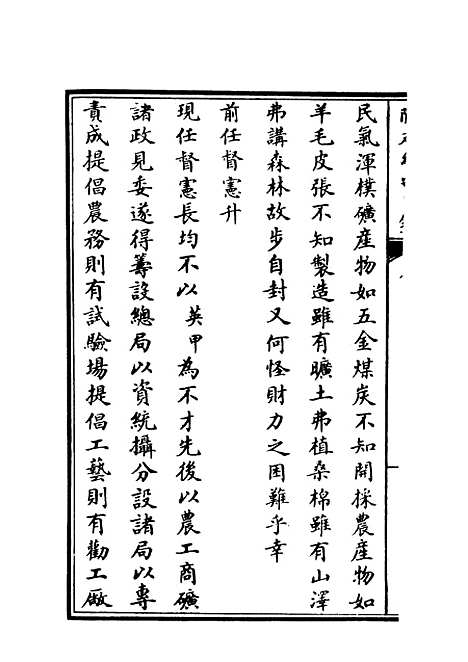 民氣渾樸礦產物如五金煤炭不知開採農產物如
羊毛皮張不知製造雖有曠土弗植桑棉雖有山澤
弗講森林故步自封又何怪財力之困難乎幸
前任督憲升
現任督憲長均不以英甲為不才先後以農工商礦
諸政見委遂得籌設總局以資統攝分設諸局以專
責成提倡農務則有試驗場提倡工藝則有勸工廠